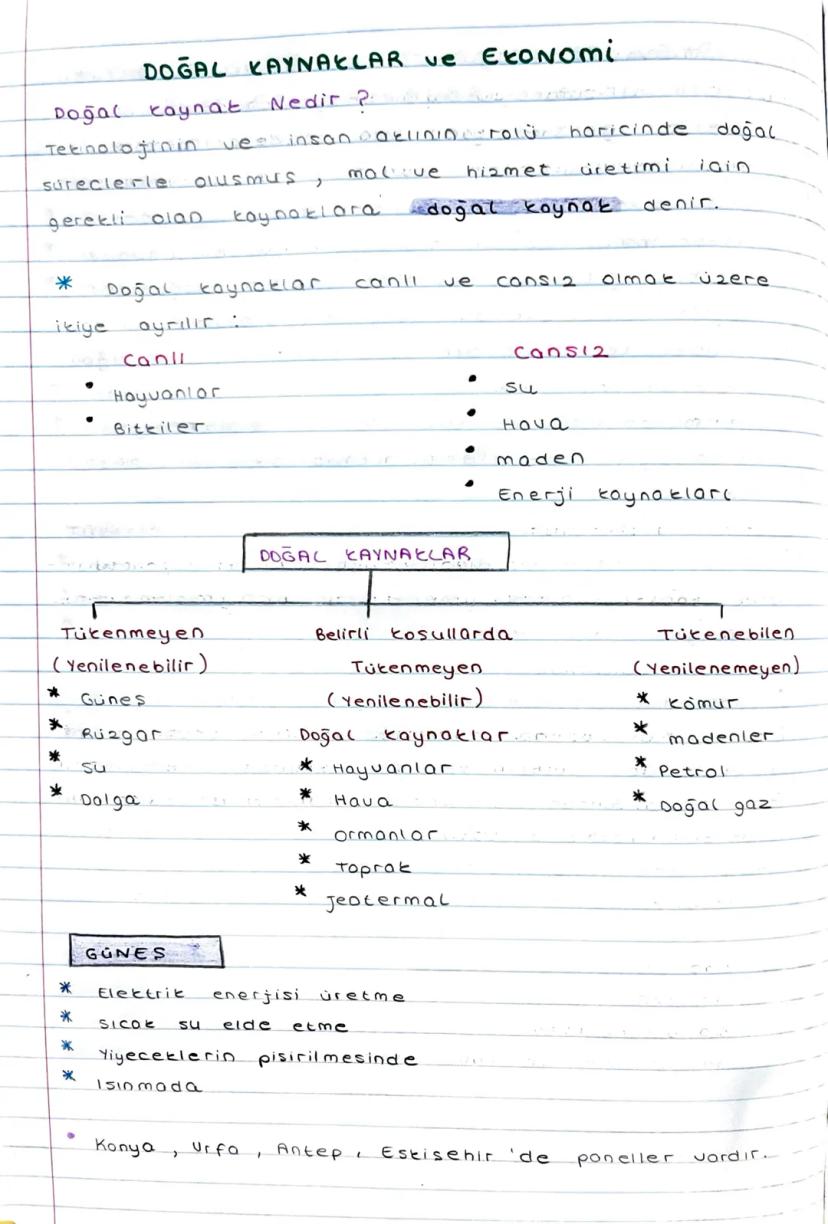 DOĞAL KAYNAKLAR ve EKONOMİ
Doğal kaynak Nedir ?
Teknolojinin ve insan aklının rolü haricinde doğal
süreclerle olusmus , mal ve hizmet üretimi icin
gerekli olan kaynaklara doğal kaynak denir.
* Doğal kaynaklar canlı ve cansız olmak üzere
ikiye ayrılır :
Canlı
• Hayvanlar
• Bitkiler
Cansız
• Su
• Hava
• maden
• Enerji kaynakları
DOĞAL KAYNAKLAR
Tükenmeyen
(Yenilenebilir)
* Günes
* Rüzgar
* Su
* Dalga
Belirli kosullarda
Tükenmeyen
(Yenilenebilir)
Doğal kaynaklar
* Hayvanlar
* Hava
* ormanlar
* Toprak
* Jeotermal
Tükenebilen
(Yenilenemeyen)
* kömur
* madenler
* Petrol
* Doğal gaz
GÜNES
* Elektrik enerjisi üretme
* sıcak su elde etme
* Yiyeceklerin pisirilmesinde
* Isınmada
• Konya , Urfa , Antep , Eskisehir 'de paneller vardır.